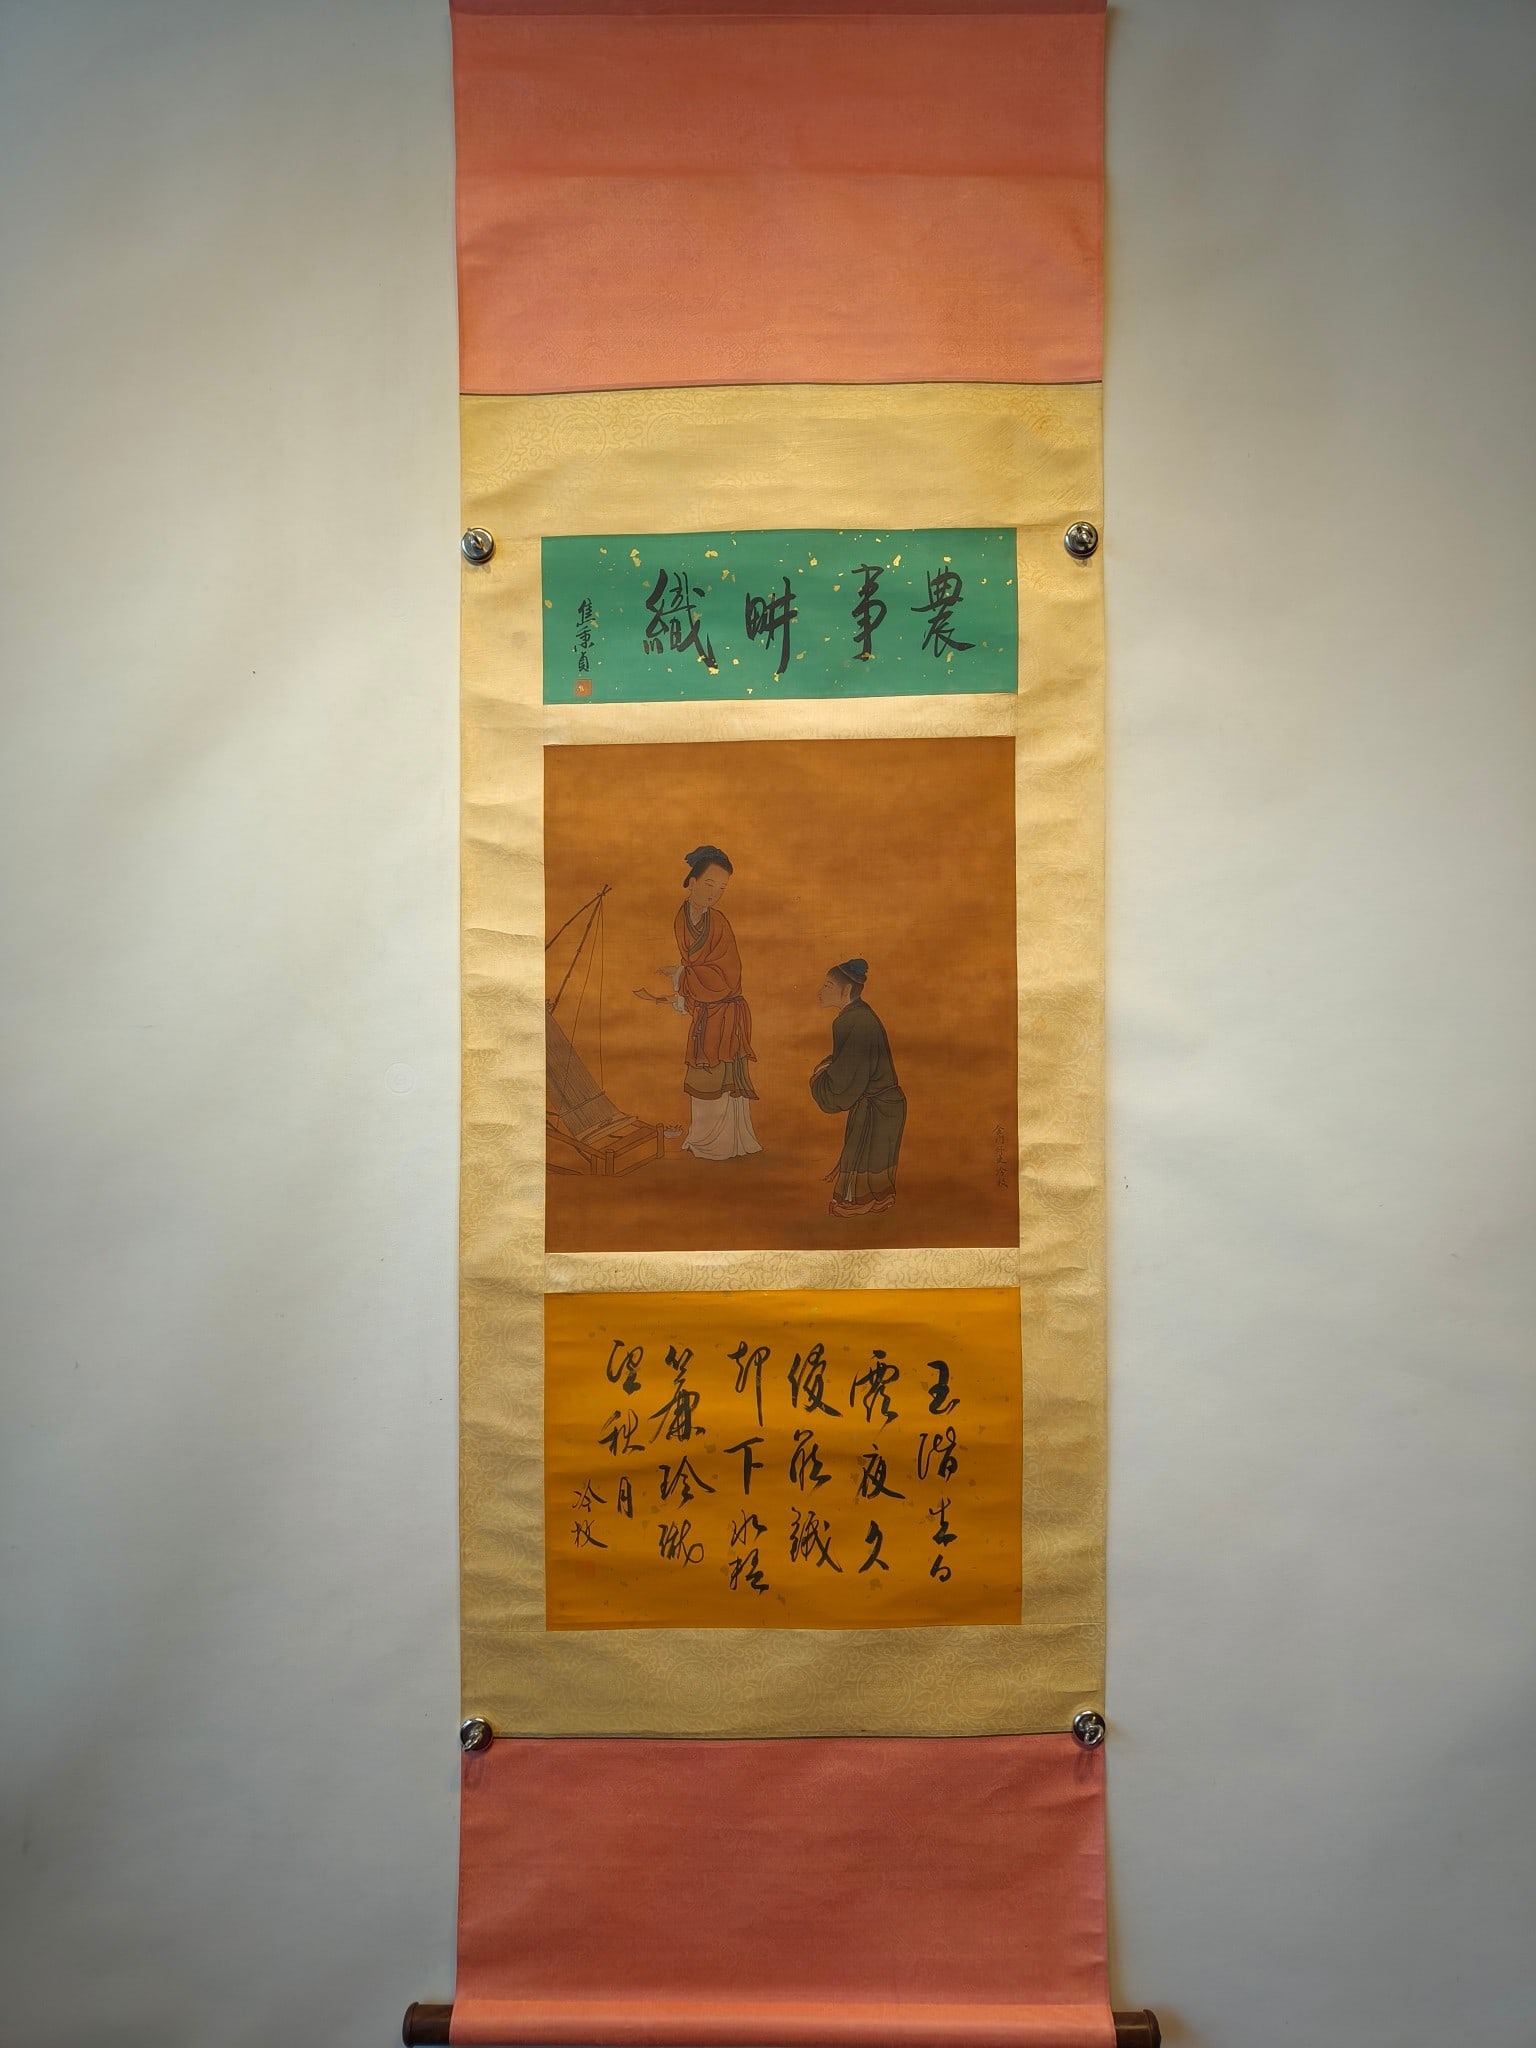 農事畊織
焦秉貞
金門外史冷枚
玉階生白
露夜久
侵羅韈
却下水精
簾玲瓏
望秋月
冷枚